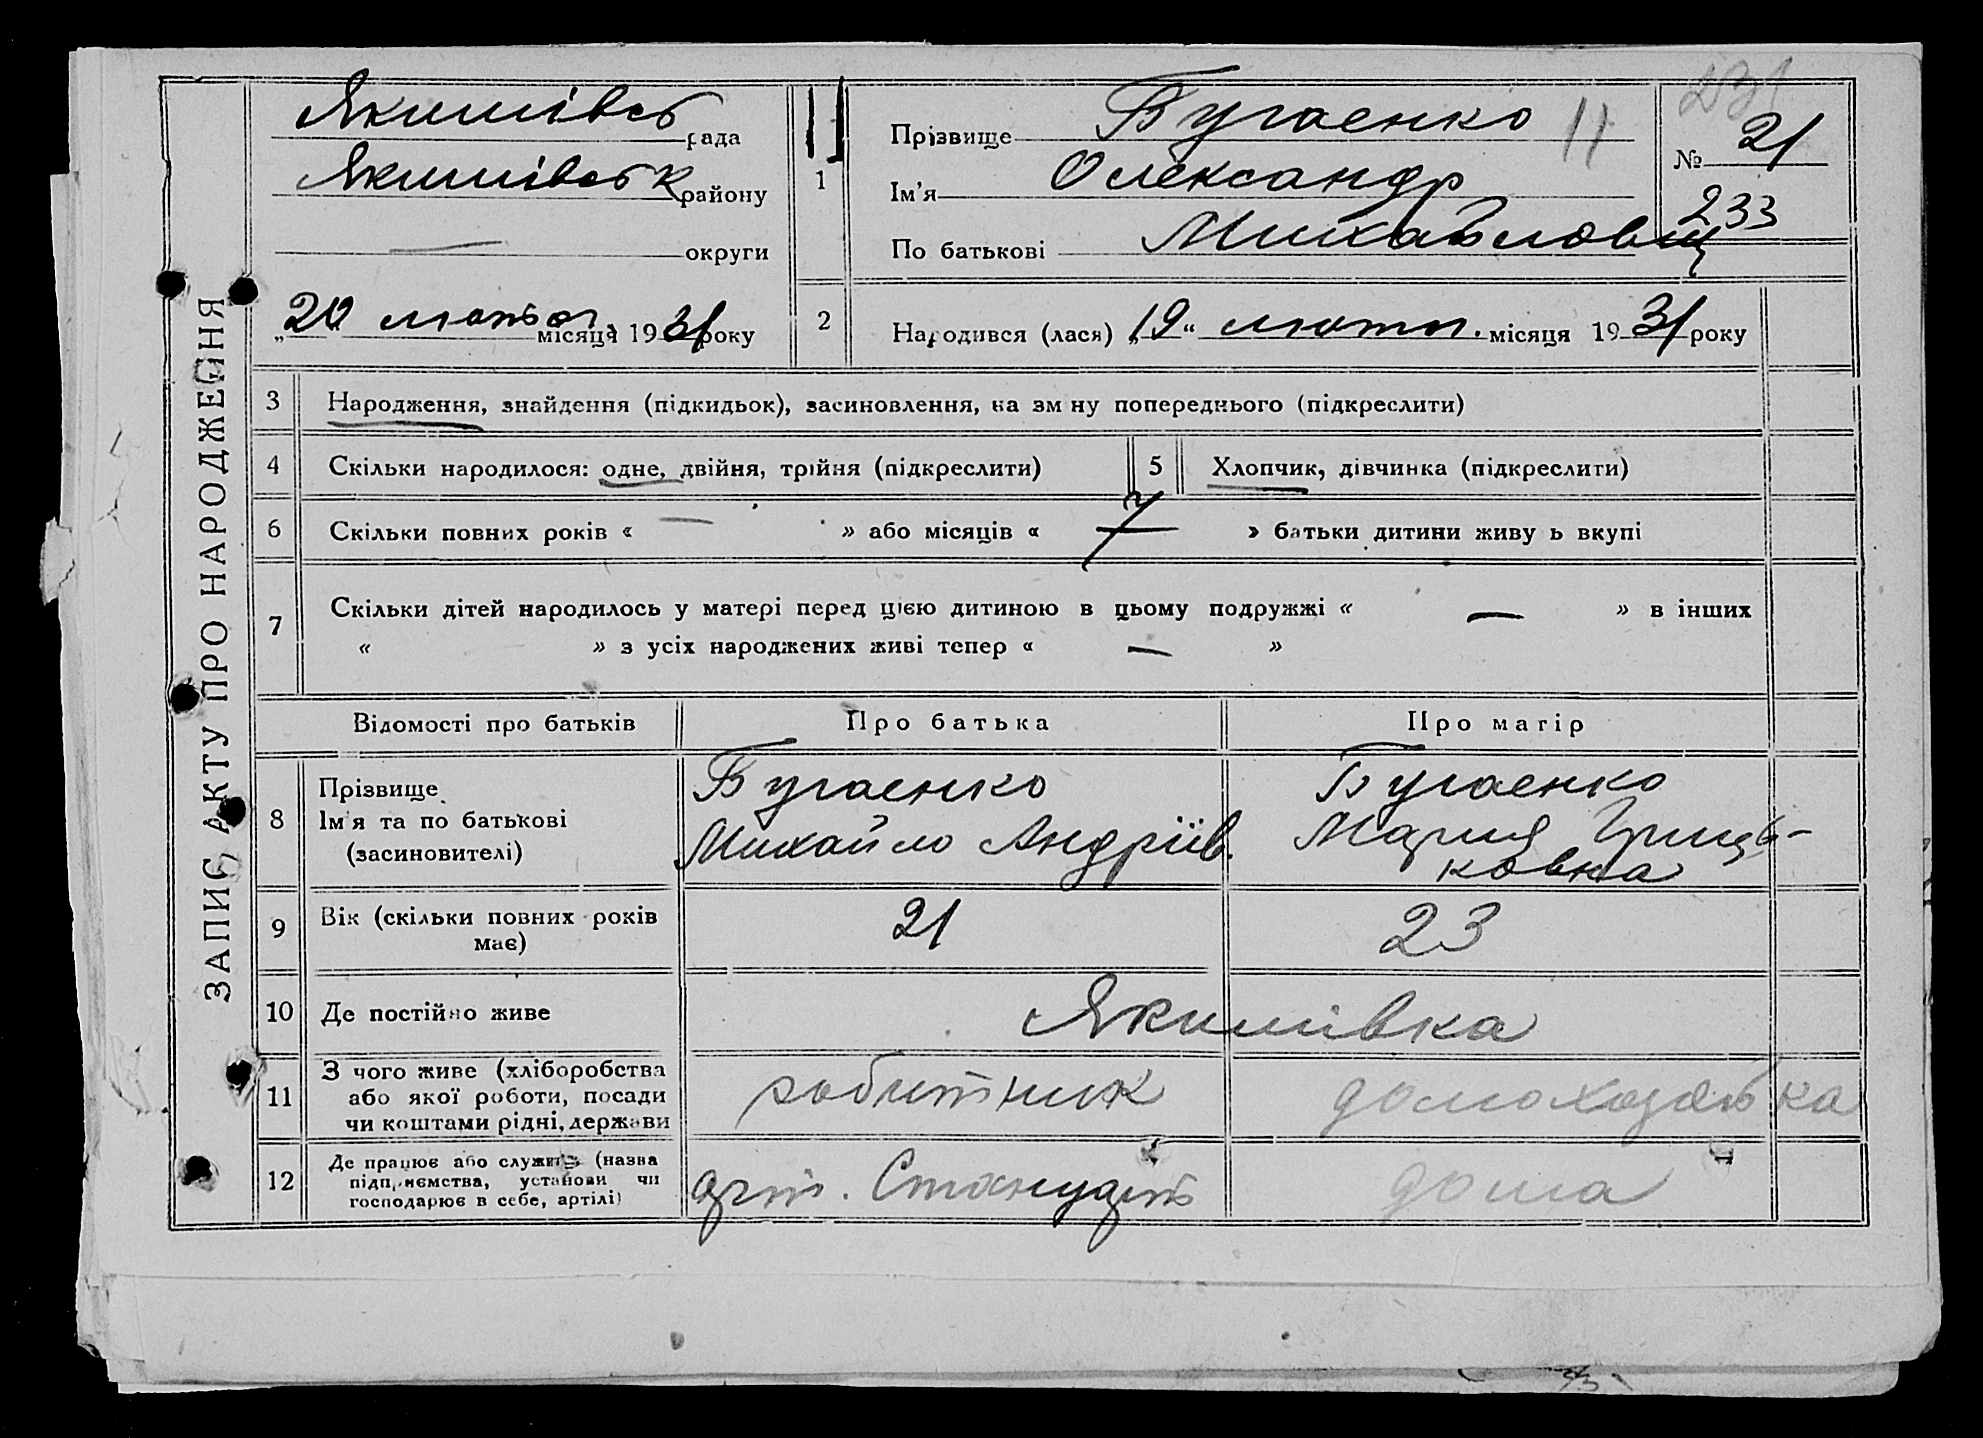 ЗАПИС АКТУ ПРО НАРОДЖЕННЯ
Якимівсь рада
Якимівськ району
— округи
„20 лютого місяця 1931 року
1
Прізвище Бугаенко 11
Ім'я Олександр
По батькові Михайлович
231
№ 21
233
2
Народився (лася) „19“ лютого місяця 1931 року
3 Народження, знайдення (підкидьок), засиновлення, на зм ну попереднього (підкреслити)
4 Скільки народилося: одне, двійня, трійня (підкреслити) 5 Хлопчик, дівчинка (підкреслити)
6 Скільки повних років « — » або місяців « 7 » батьки дитини живу ь вкупі
7 Скільки дітей народилось у матері перед цією дитиною в цьому подружжі « — » в інших
« » з усіх народжених живі тепер « — »
Відомості про батьків Про батька Про матір
8 Прізвище Бугаенко Бугаенко
Ім'я та по батькові Михайло Андріїв. Мария Гриць-
(засиновителі) ковна
9 Вік (скільки повних років 21 23
має)
10 Де постійно живе Якимівка
11 З чого живе (хліборобства робитник домохозяйка
або якої роботи, посади
чи коштами рідні, держави
12 Де працює або служить (назва дома
підприємства, установи чи
господарює в себе, артілі)